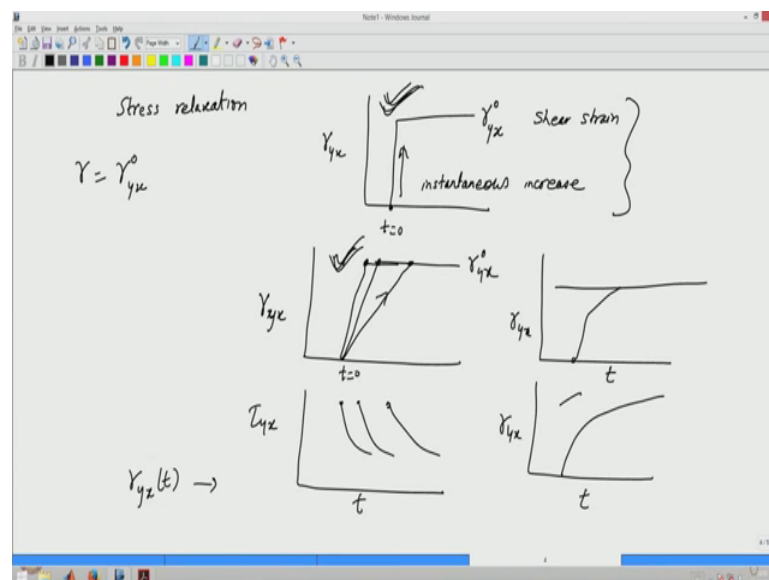 Note1 - Windows Journal
File Edit View Insert Actions Tools Help
Page Width
B I
Stress relaxation
γyx
γ°yx shear strain
instantaneous increase
t=0
γ = γ°yx
γyx
γ°yx
t=0
γyx
t
τyx
t
γyx
t
γyx(t) →